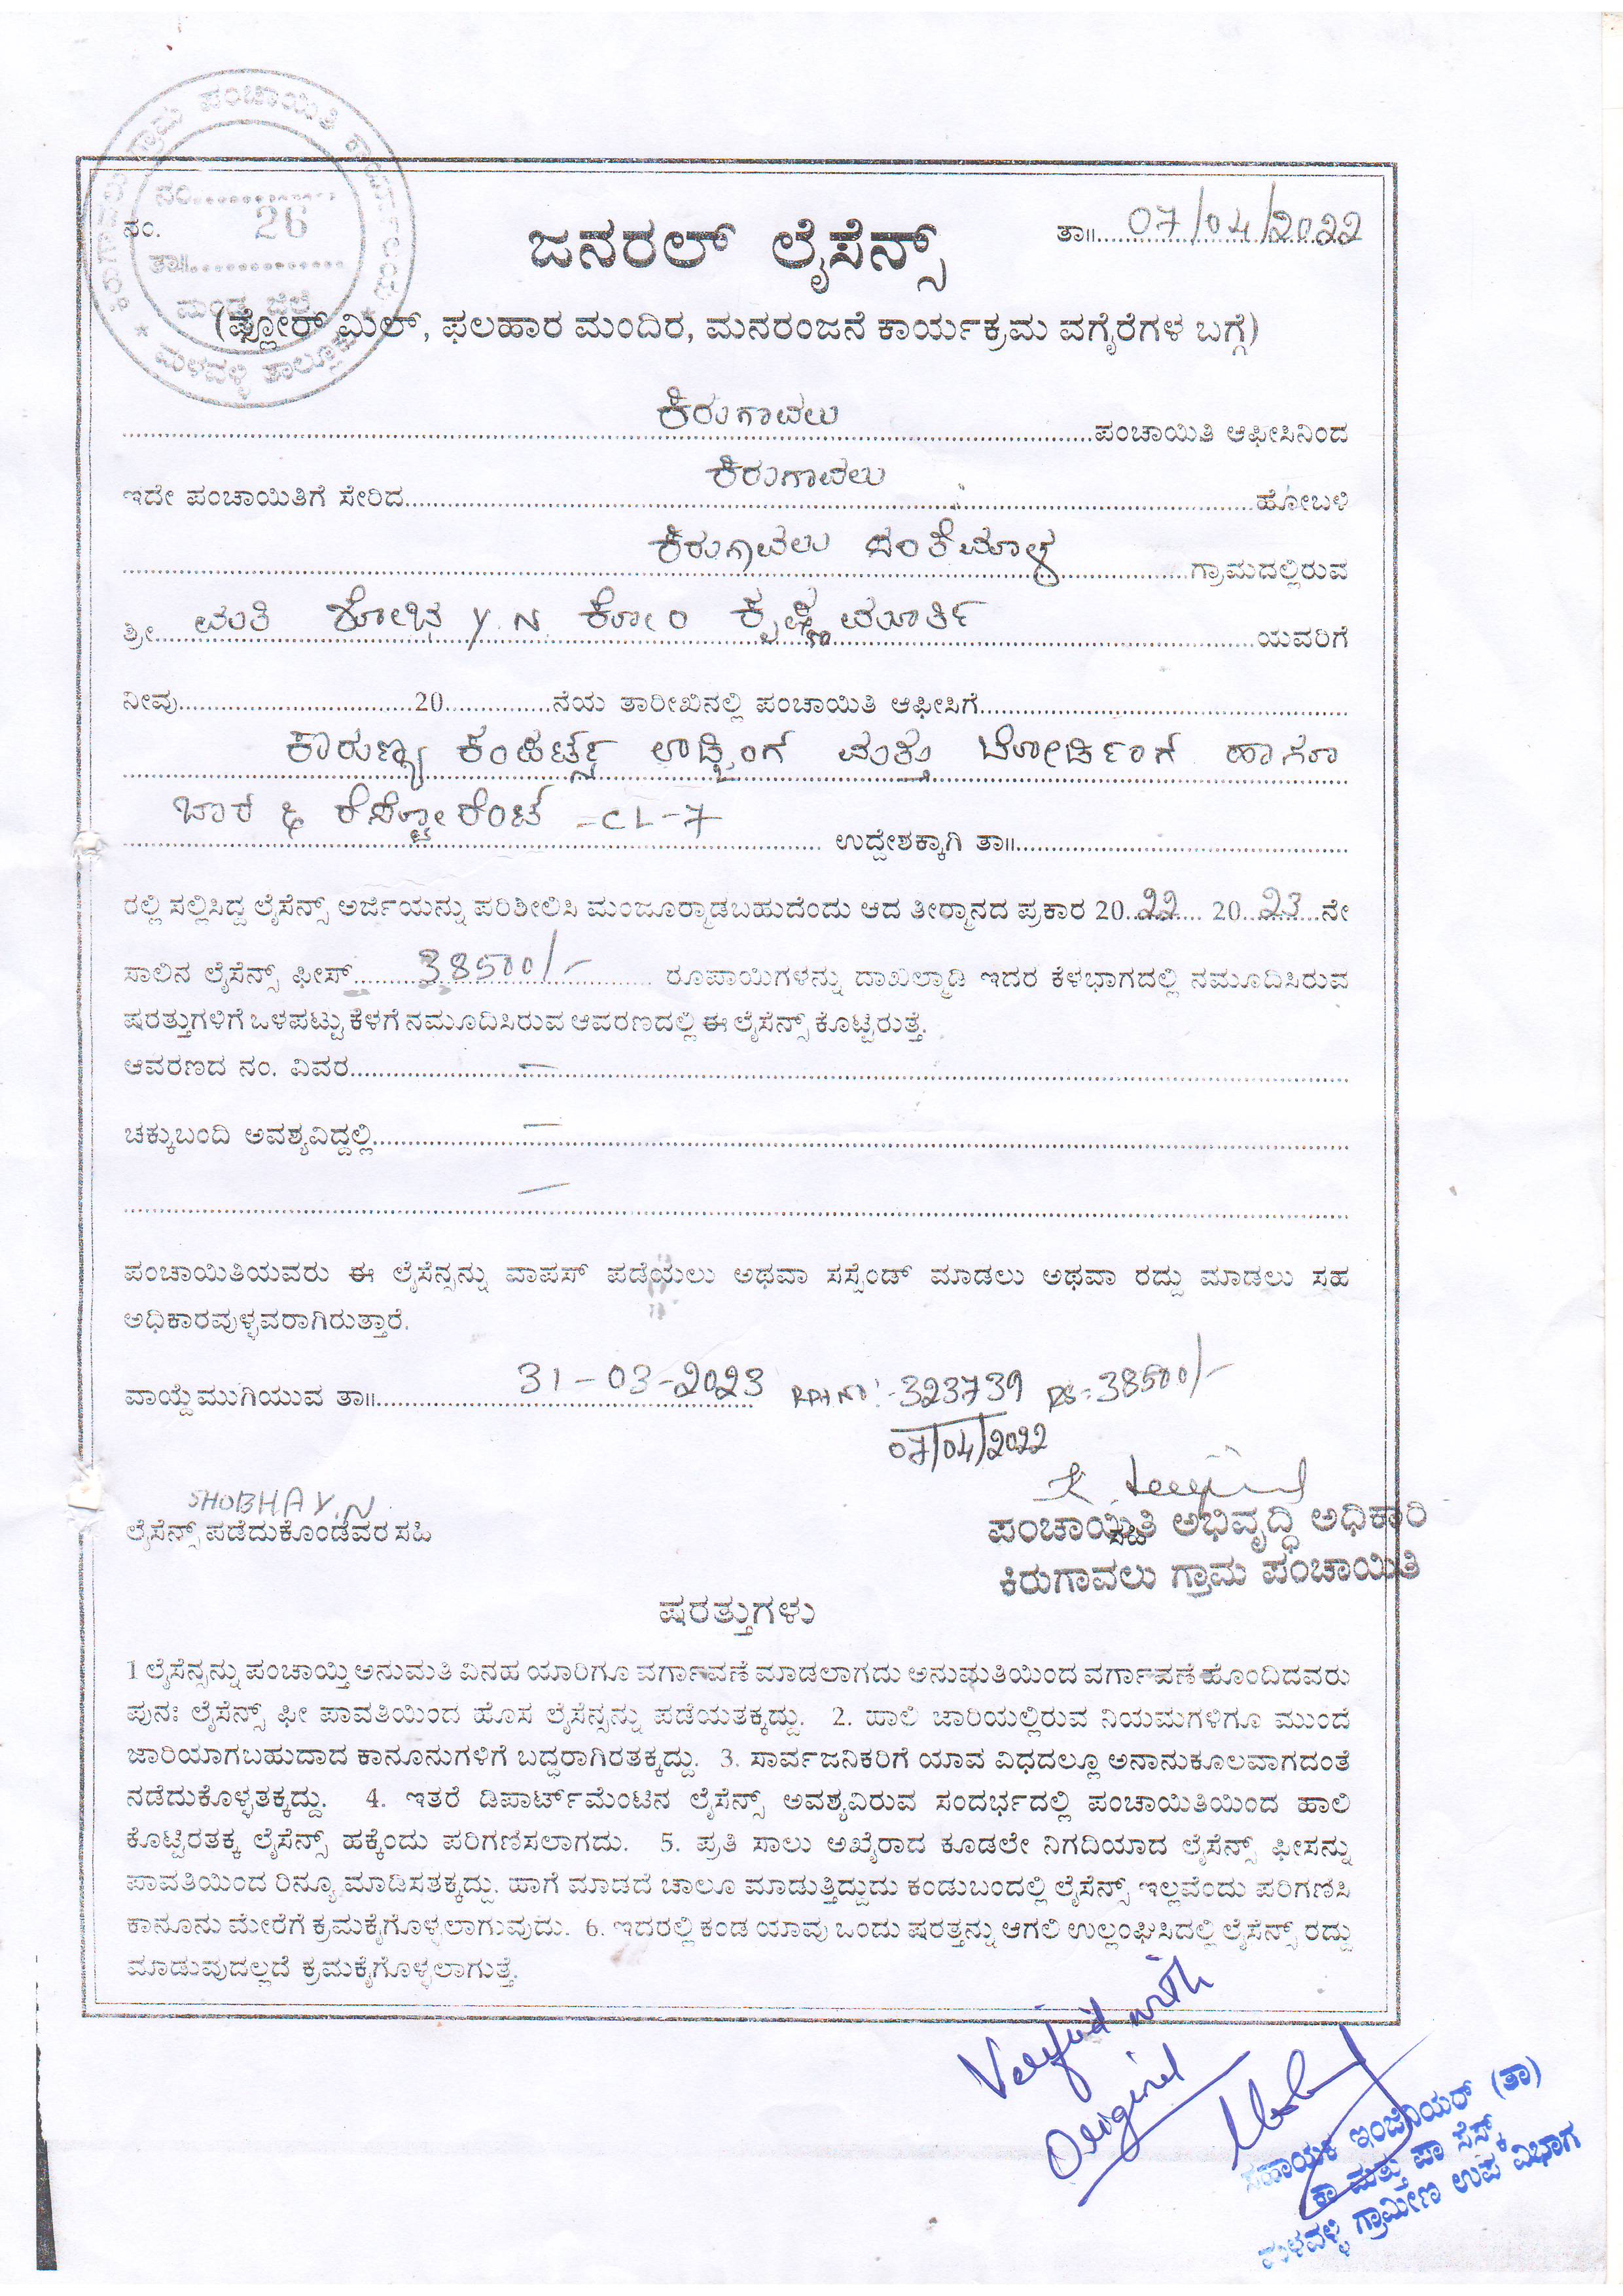 ಗ್ರಾಮ ಪಂಚಾಯಿತಿ ಕಾರ್ಯಾಲಯ
ನಂ..............
26
ತಾ॥..............
ಮಂಡ್ಯ ಜಿಲ್ಲೆ
ಮಳವಳ್ಳಿ ತಾಲ್ಲೂಕು
ನಂ. ತಾ॥ 07/04/2022
ಜನರಲ್ ಲೈಸೆನ್ಸ್
(ಫ್ಲೋರ್ ಮಿಲ್, ಫಲಹಾರ ಮಂದಿರ, ಮನರಂಜನೆ ಕಾರ್ಯಕ್ರಮ ವಗೈರೆಗಳ ಬಗ್ಗೆ)
ಕಿರುಗಾವಲು ಪಂಚಾಯಿತಿ ಆಫೀಸಿನಿಂದ
ಇದೇ ಪಂಚಾಯಿತಿಗೆ ಸೇರಿದ ಕಿರುಗಾವಲು ಹೋಬಳಿ
ಕಿರುಗಾವಲು ಸಂತೆಮಾಳ ಗ್ರಾಮದಲ್ಲಿರುವ
ಶ್ರೀ ಮತಿ ಶೋಭ Y.N. ಕೋಂ ಕೃಷ್ಣಮೂರ್ತಿ ಯವರಿಗೆ
ನೀವು..............20..............ನೆಯ ತಾರೀಖಿನಲ್ಲಿ ಪಂಚಾಯಿತಿ ಆಫೀಸಿಗೆ..............
ಕಾರುಣ್ಯ ಕಂಫರ್ಟ್ಸ್ ಲಾಡ್ಜಿಂಗ್ ಮತ್ತು ಬೋರ್ಡಿಂಗ್ ಹಾಗೂ
ಬಾರ್ & ರೆಸ್ಟೋರೆಂಟ್ =CL-7 ಉದ್ದೇಶಕ್ಕಾಗಿ ತಾ॥..............
ರಲ್ಲಿ ಸಲ್ಲಿಸಿದ್ದ ಲೈಸೆನ್ಸ್ ಅರ್ಜಿಯನ್ನು ಪರಿಶೀಲಿಸಿ ಮಂಜೂರ್‍ಮಾಡಬಹುದೆಂದು ಆದ ತೀರ್‍ಮಾನದ ಪ್ರಕಾರ 2022 2023ನೇ
ಸಾಲಿನ ಲೈಸೆನ್ಸ್ ಫೀಸ್ 38500/- ರೂಪಾಯಿಗಳನ್ನು ದಾಖಲ್ಮಾಡಿ ಇದರ ಕೆಳಭಾಗದಲ್ಲಿ ನಮೂದಿಸಿರುವ
ಷರತ್ತುಗಳಿಗೆ ಒಳಪಟ್ಟು ಕೆಳಗೆ ನಮೂದಿಸಿರುವ ಆವರಣದಲ್ಲಿ ಈ ಲೈಸೆನ್ಸ್ ಕೊಟ್ಟಿರುತ್ತೆ.
ಆವರಣದ ನಂ. ವಿವರ —
ಚಕ್ಕುಬಂದಿ ಅವಶ್ಯವಿದ್ದಲ್ಲಿ —
—
ಪಂಚಾಯಿತಿಯವರು ಈ ಲೈಸೆನ್ಸನ್ನು ವಾಪಸ್ ಪಡೆಯಲು ಅಥವಾ ಸಸ್ಪೆಂಡ್ ಮಾಡಲು ಅಥವಾ ರದ್ದು ಮಾಡಲು ಸಹ
ಅಧಿಕಾರವುಳ್ಳವರಾಗಿರುತ್ತಾರೆ.
ವಾಯ್ದೆಮುಗಿಯುವ ತಾ॥ 31-03-2023 RPt NO:-323739 RS=38500/-
07/04/2022
SHOBHA Y.N
ಲೈಸೆನ್ಸ್ ಪಡೆದುಕೊಂಡವರ ಸಹಿ
ಪಂಚಾಯಿತಿ ಅಭಿವೃದ್ಧಿ ಅಧಿಕಾರಿ
ಕಿರುಗಾವಲು ಗ್ರಾಮ ಪಂಚಾಯಿತಿ
ಷರತ್ತುಗಳು
1 ಲೈಸೆನ್ಸನ್ನು ಪಂಚಾಯ್ತಿ ಅನುಮತಿ ವಿನಹ ಯಾರಿಗೂ ವರ್ಗಾವಣೆ ಮಾಡಲಾಗದು ಅನುಮತಿಯಿಂದ ವರ್ಗಾವಣೆ ಹೊಂದಿದವರು
ಪುನಃ ಲೈಸೆನ್ಸ್ ಫೀ ಪಾವತಿಯಿಂದ ಹೊಸ ಲೈಸೆನ್ಸನ್ನು ಪಡೆಯತಕ್ಕದ್ದು. 2. ಹಾಲಿ ಜಾರಿಯಲ್ಲಿರುವ ನಿಯಮಗಳಿಗೂ ಮುಂದೆ
ಜಾರಿಯಾಗಬಹುದಾದ ಕಾನೂನುಗಳಿಗೆ ಬದ್ಧರಾಗಿರತಕ್ಕದ್ದು. 3. ಸಾರ್ವಜನಿಕರಿಗೆ ಯಾವ ವಿಧದಲ್ಲೂ ಅನಾನುಕೂಲವಾಗದಂತೆ
ನಡೆದುಕೊಳ್ಳತಕ್ಕದ್ದು. 4. ಇತರೆ ಡಿಪಾರ್ಟ್‌ಮೆಂಟಿನ ಲೈಸೆನ್ಸ್ ಅವಶ್ಯವಿರುವ ಸಂದರ್ಭದಲ್ಲಿ ಪಂಚಾಯಿತಿಯಿಂದ ಹಾಲಿ
ಕೊಟ್ಟಿರತಕ್ಕ ಲೈಸೆನ್ಸ್ ಹಕ್ಕೆಂದು ಪರಿಗಣಿಸಲಾಗದು. 5. ಪ್ರತಿ ಸಾಲು ಅಖೈರಾದ ಕೂಡಲೇ ನಿಗದಿಯಾದ ಲೈಸೆನ್ಸ್ ಫೀಸನ್ನು
ಪಾವತಿಯಿಂದ ರಿನ್ಯೂ ಮಾಡಿಸತಕ್ಕದ್ದು. ಹಾಗೆ ಮಾಡದೆ ಚಾಲೂ ಮಾಡುತ್ತಿದ್ದುದು ಕಂಡುಬಂದಲ್ಲಿ ಲೈಸೆನ್ಸ್ ಇಲ್ಲವೆಂದು ಪರಿಗಣಿಸಿ
ಕಾನೂನು ಮೇರೆಗೆ ಕ್ರಮಕೈಗೊಳ್ಳಲಾಗುವುದು. 6. ಇದರಲ್ಲಿ ಕಂಡ ಯಾವು ಒಂದು ಷರತ್ತನ್ನು ಆಗಲಿ ಉಲ್ಲಂಘಿಸಿದಲ್ಲಿ ಲೈಸೆನ್ಸ್ ರದ್ದು
ಮಾಡುವುದಲ್ಲದೆ ಕ್ರಮಕೈಗೊಳ್ಳಲಾಗುತ್ತೆ.
Verified with
Original
ಸಹಾಯಕ ಇಂಜಿನಿಯರ್ (ತಾ)
ಕಾ ಮತ್ತು ಪಾ ಸೆಸ್ಕ್
ಮಳವಳ್ಳಿ ಗ್ರಾಮೀಣ ಉಪ ವಿಭಾಗ